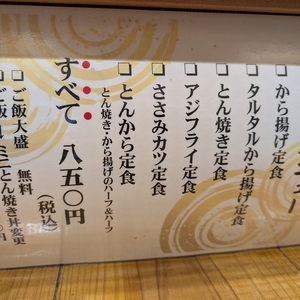 □ から揚げ定食
□ タルタルから揚げ定食
□ とん焼き定食
□ アジフライ定食
□ ささみカツ定食
□ とんから定食
とん焼き・から揚げのハーフ&ハーフ
すべて 八五〇円
(税込)
□ ご飯大盛 無料